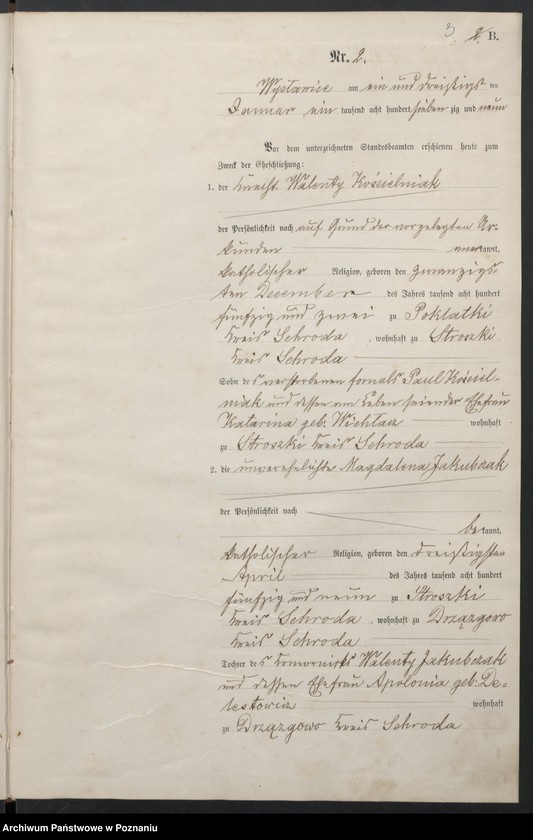 3. 2. B.
Nr. 2.
Wyslawice am ein und dreißigsten
Januar ein tausend acht hundert sieben zig und neun
Vor dem unterzeichneten Standesbeamten erschienen heute zum
Zweck der Eheschließung:
1. der Knecht Walenty Kościelniak
der Persönlichkeit nach auf Grund der vorgelegten Ur-
kunden anerkannt,
katholischer Religion, geboren den zwanzigs-
ten December des Jahres tausend acht hundert
fünfzig und zwei zu Poklatki
Kreis Schroda, wohnhaft zu Stroszki
Kreis Schroda
Sohn des verstorbenen fornals Paul Kościel-
niak und dessen am Leben seiender Ehefrau
Katarina geb. Wichłacz wohnhaft
zu Stroszki Kreis Schroda
2. die unverehelichte Magdalena Jakubczak
der Persönlichkeit nach
bekannt,
katholischer Religion, geboren den dreißigsten
April des Jahres tausend acht hundert
fünfzig und neun zu Stroszki
Kreis Schroda, wohnhaft zu Drzązgowo
Kreis Schroda
Tochter des Komorniks Walenty Jakubczak
und dessen Ehefrau Apolonia geb: De-
lestowicz wohnhaft
zu Drzązgowo Kreis Schroda
Archiwum Państwowe w Poznaniu